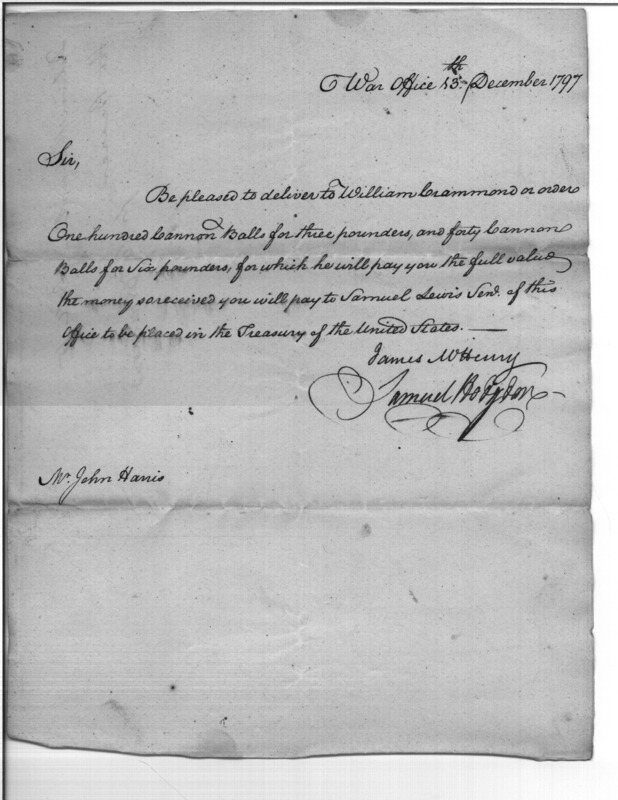 War Office 13th December 1797
Sir,
Be pleased to deliver to William Crammond or order
One hundred Cannon Balls for three pounders, and forty Cannon
Balls for Six pounders, for which he will pay you the full value
the money so received you will pay to Samuel Lewis Senr. of this
Office to be placed in the Treasury of the United States. —
James McHenry
Samuel Hodgdon
Mr. John Harris